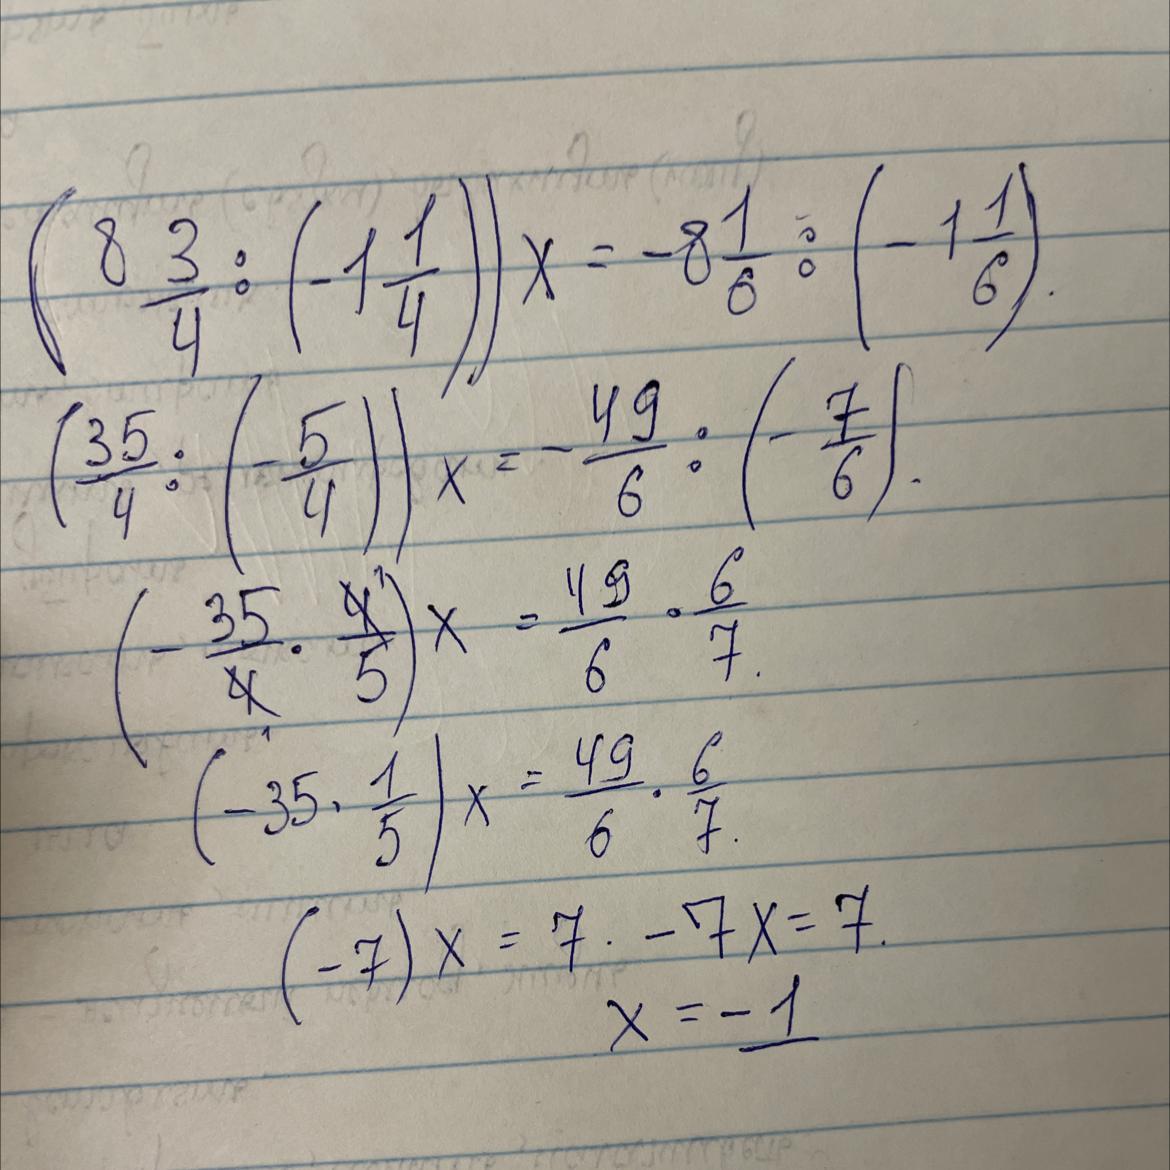 (8 3/4 : (-1 1/4)) x = -8 1/6 : (-1 1/6).
(35/4 : (-5/4)) x = -49/6 : (-7/6).
(-35/4 · 4/5) x = 49/6 · 6/7.
(-35 · 1/5) x = 49/6 · 6/7.
(-7) x = 7. -7x = 7.
x = -1